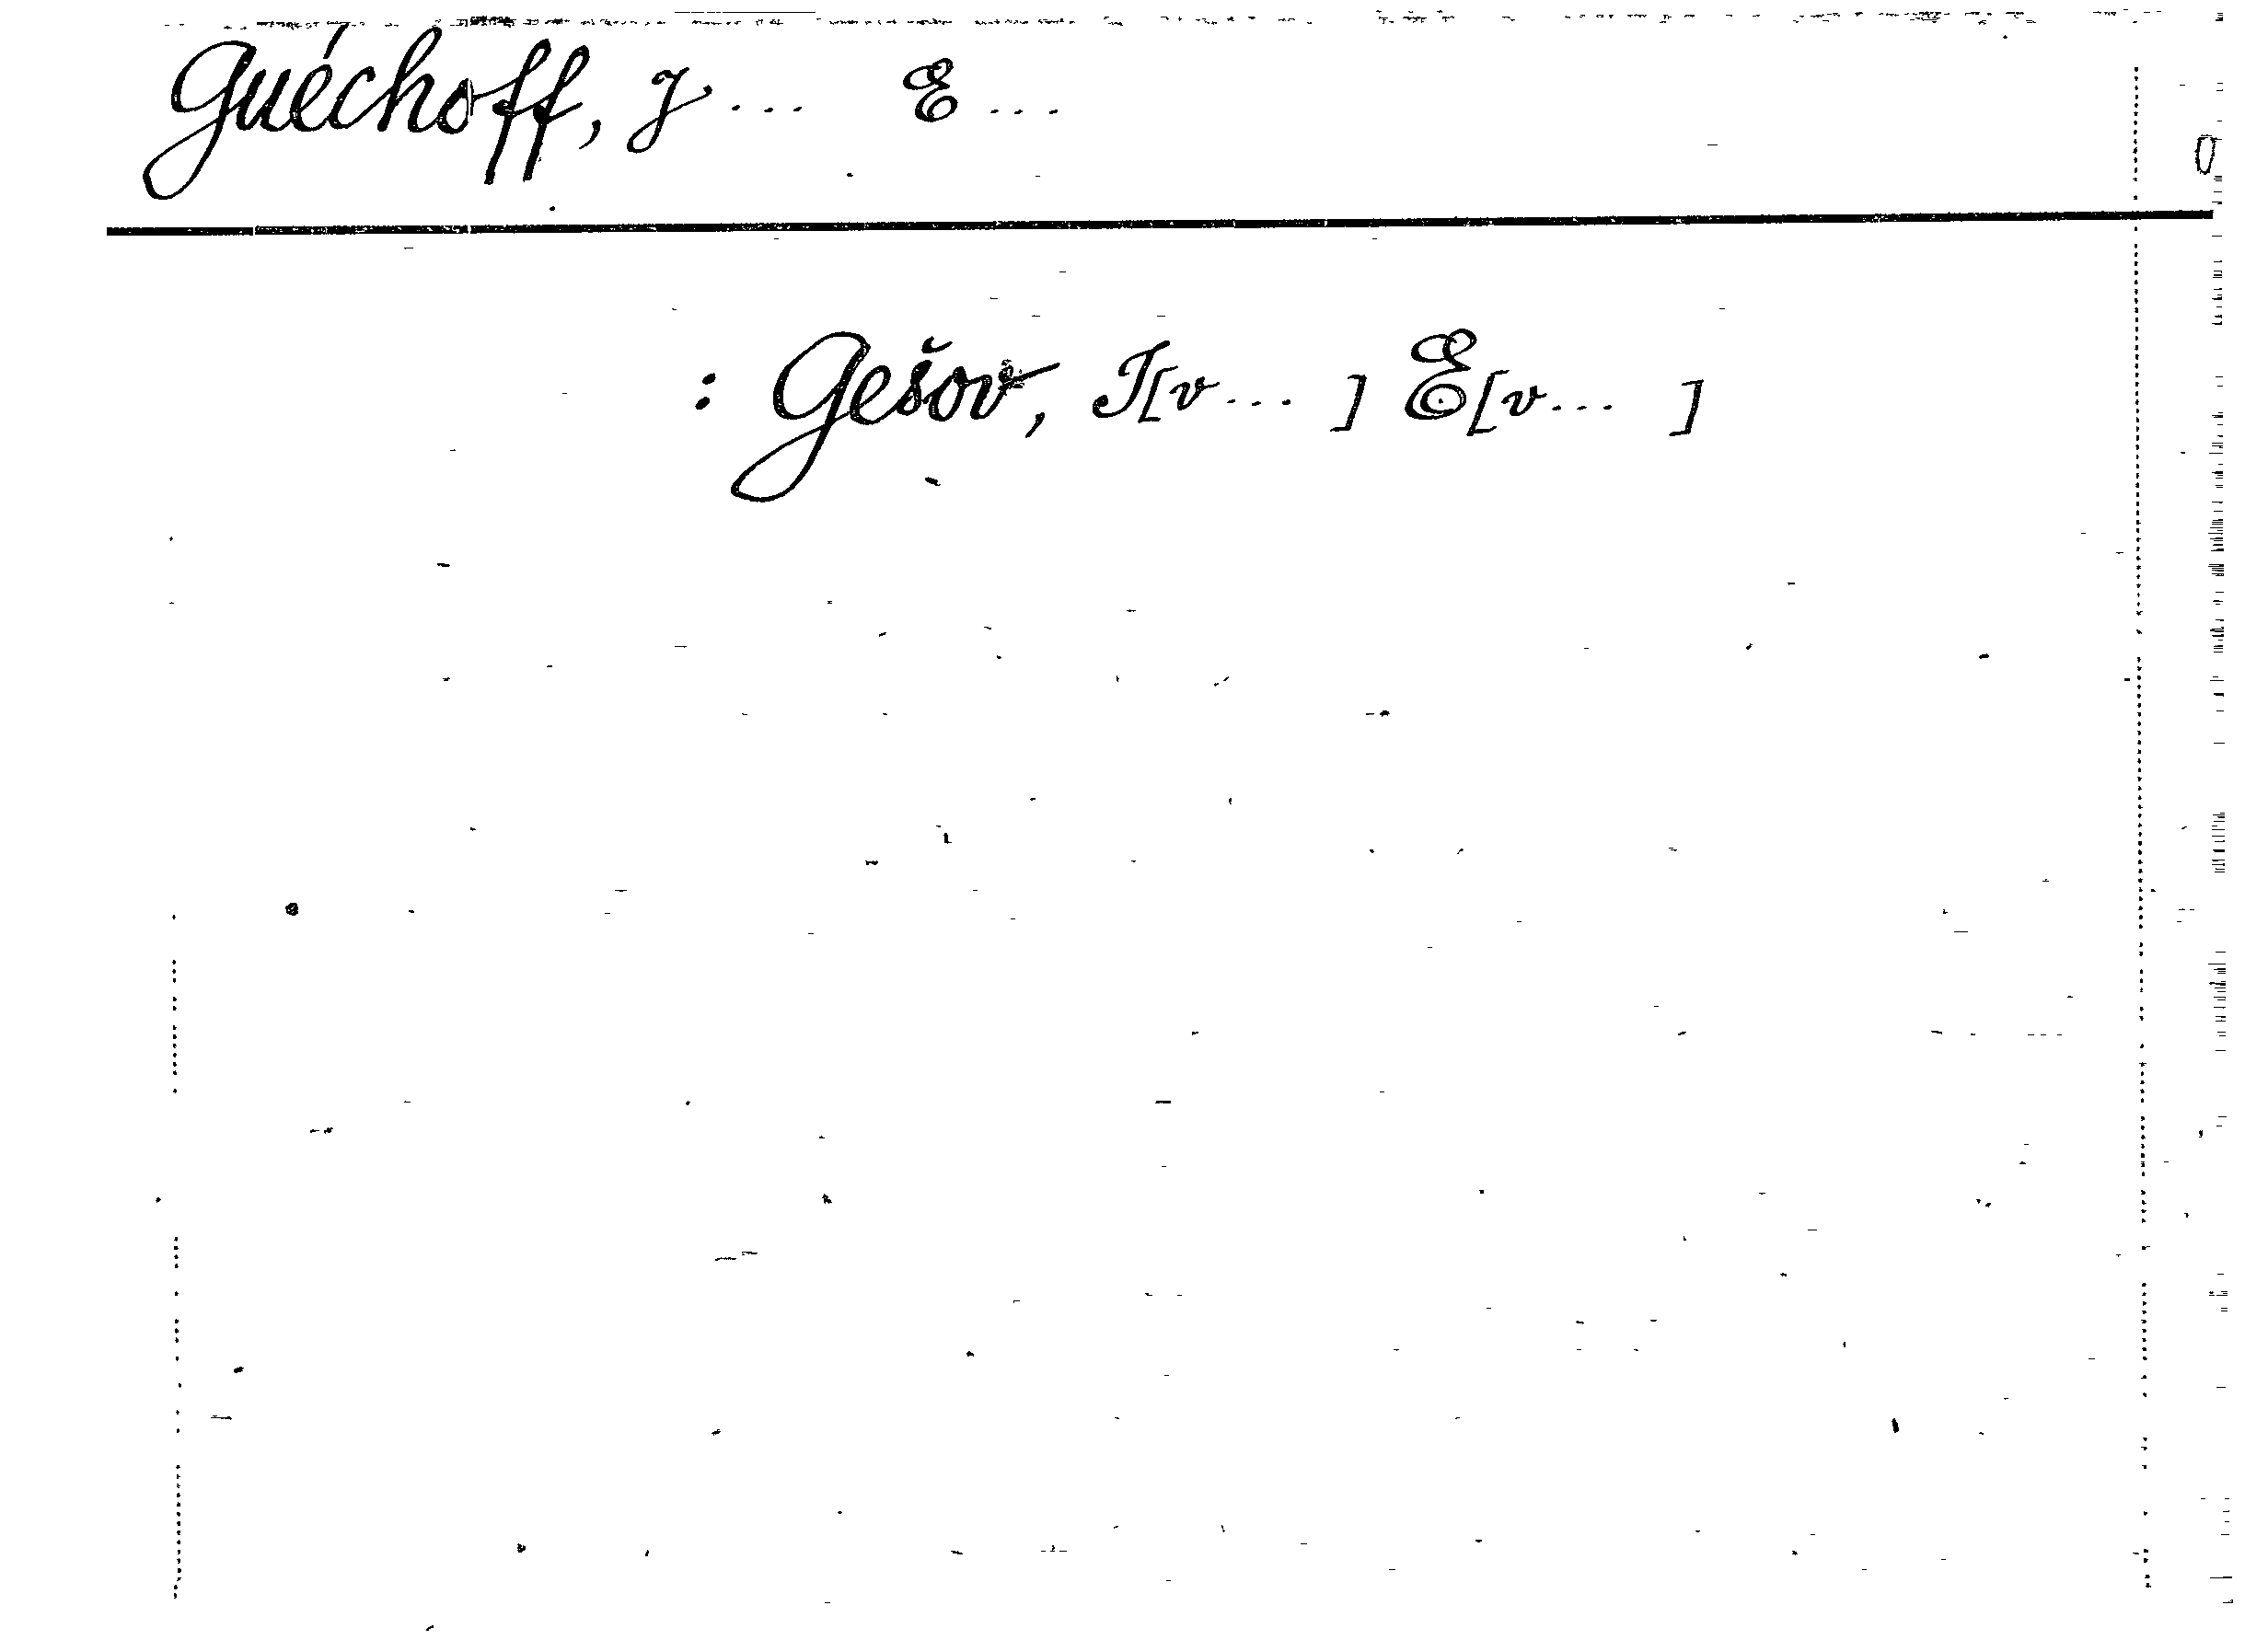 Guéchoff, J... E...
: Gešov, I[v... ] E[v... ]